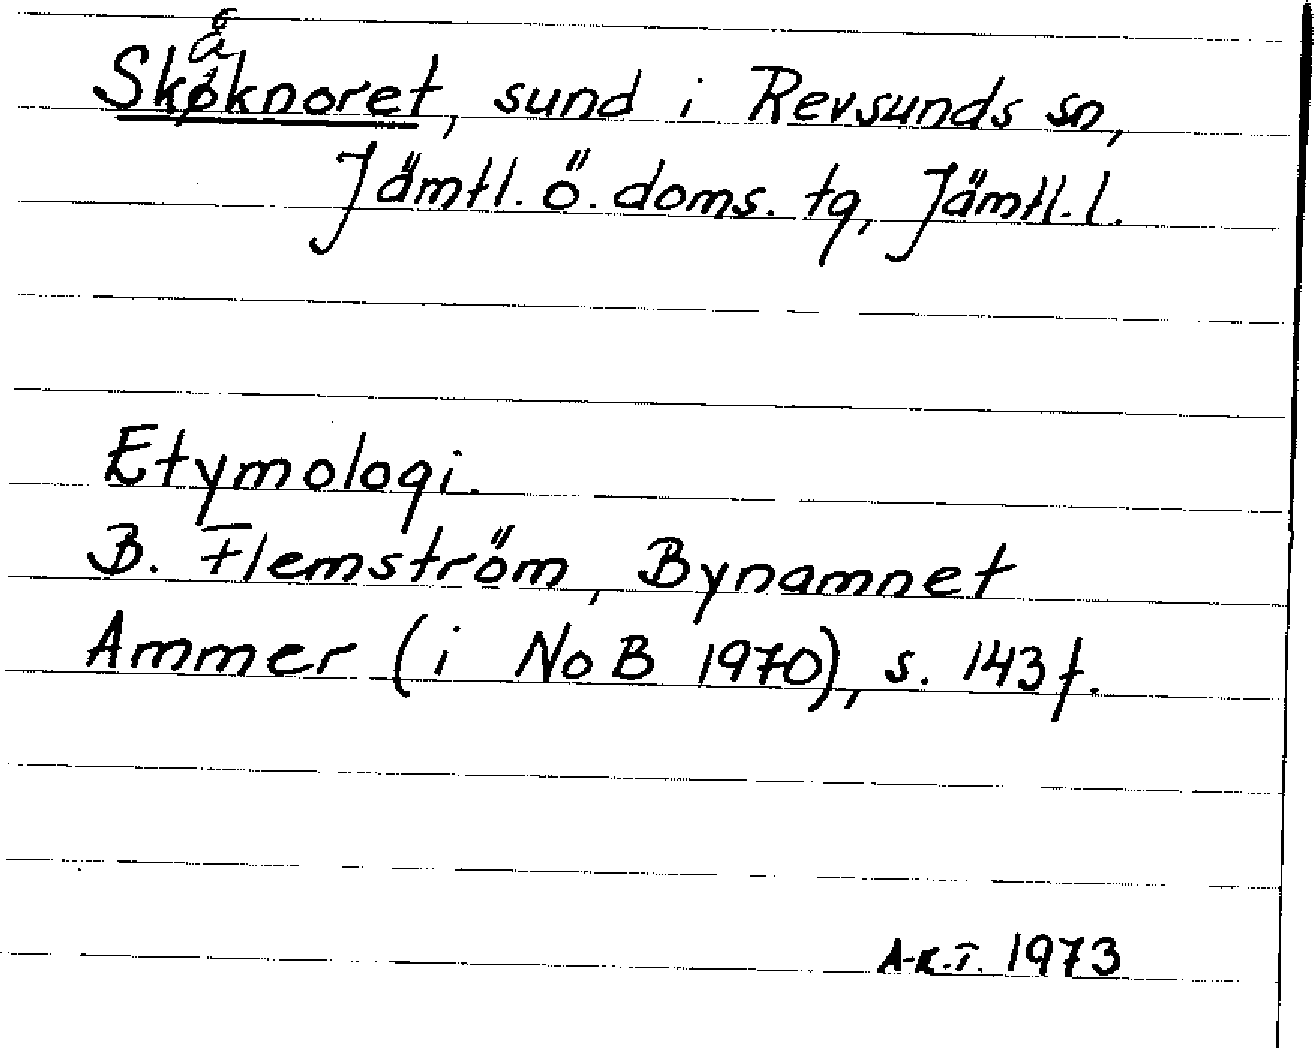 Skåknoret, sund i Revsunds sn,
Jämtl. ö. doms. tg, Jämtl. l.
Etymologi.
B. Flemström, Bynamnet
Ammer (i NoB 1970), s. 143 f.
A-K.T. 1973